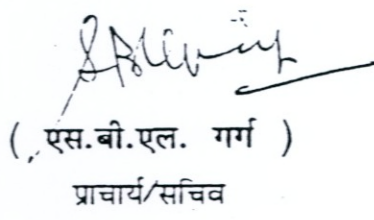 ( एस.बी.एल. गर्ग )
प्राचार्य/सचिव